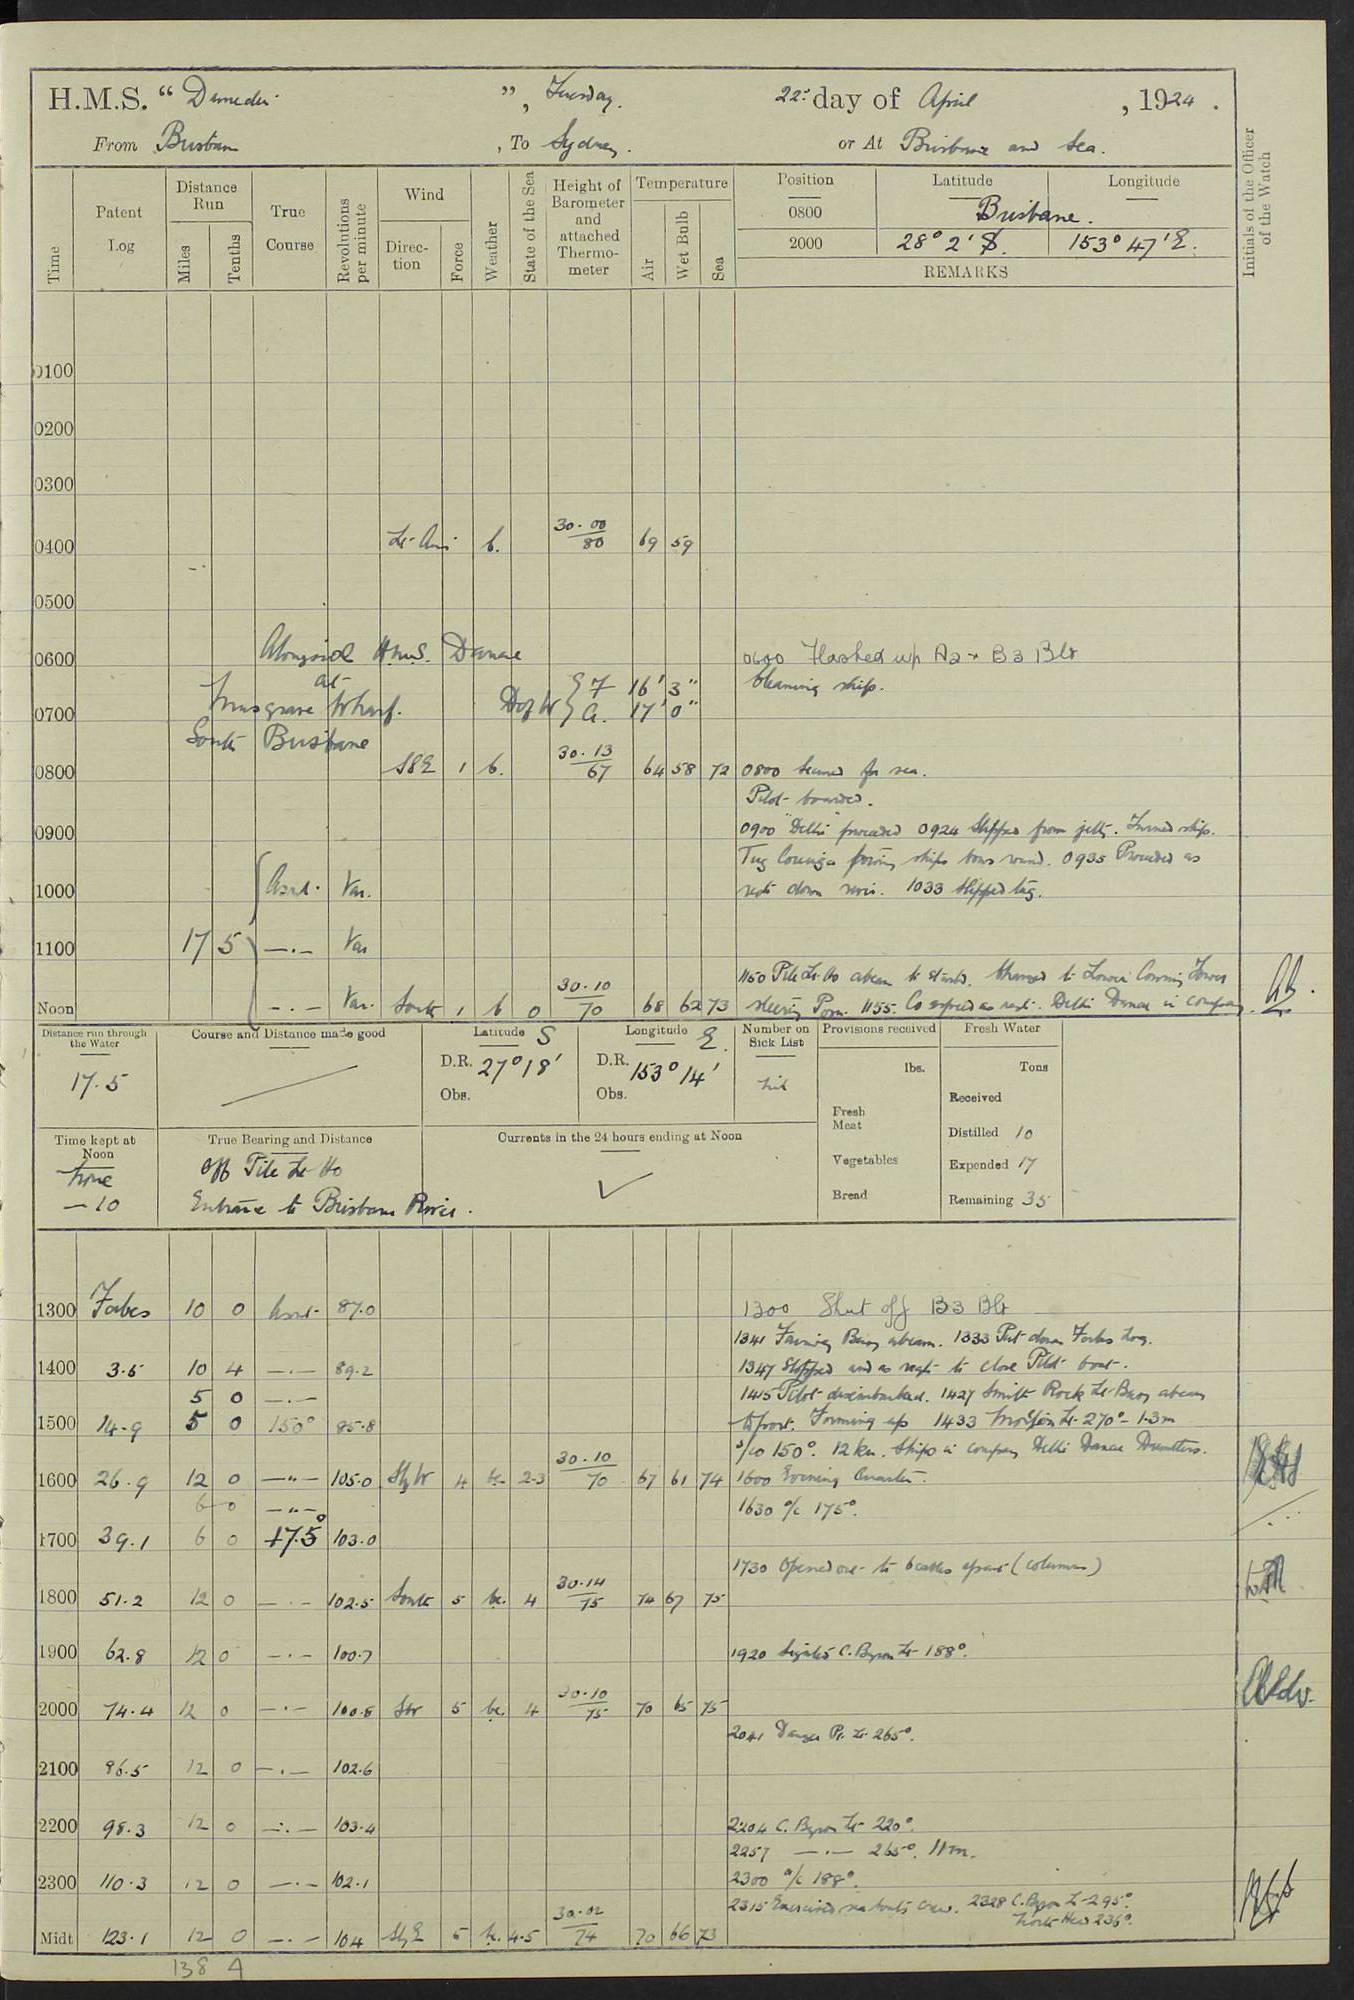 H.M.S. " ", Tuesday. 22nd day of April, 1924.
From Brisbane, To Sydney. or At Brisbane and Sea.
Time
Patent Log
Distance Run
Miles
Tenths
True Course
Revolutions per minute
Wind
Direction
Force
Weather
State of the Sea
Height of Barometer and attached Thermometer
Temperature
Air
Wet Bulb
Sea
Position Latitude Longitude
0800 Brisbane.
2000 28° 2' S. 153° 47' E.
REMARKS
Initials of the Officer of the Watch
0100
0200
0300
0400 Lt Airs b. 30.00 80 69 59
0500
0600 Alongside H.M.S. Danae 0600 Flashed up A2 + B3 Blr
at Cleaning ship.
Musgrave Wharf. F 16' 3"
0700 A. 17' 0"
South Brisbane
0800 SSE 1 b. 30.13 67 64 58 72 0800 Secured for sea.
Pilot boarded.
0900 0900 "Delhi" proceeded 0924 Slipped from jetty. Turned ship.
Tug ships bows round. 0935 Proceeded as
1000 Asreq. Var. reqte down river. 1033 Slipped tug.
1100 17 5 —.— Var
1150 Pile Lt. Ho abeam to starbd. Changed to Lower Conning Tower
Noon —.— Var. South 1 b 0 30.10 70 68 62 73 steering Posn. 1155. Co & speed as reqte. Delhi Danae in company.
Distance run through the Water
17.5
Course and Distance made good
Latitude S
D.R. 27° 18'
Obs.
Longitude E.
D.R. 153° 14'
Obs.
Number on Sick List
nil
Provisions received
lbs.
Fresh Meat
Vegetables
Bread
Fresh Water
Tons
Received
Distilled 10
Expended 17
Remaining 35
Time kept at Noon
Zone
—10
True Bearing and Distance
Off Pile Lt Ho
Entrance to Brisbane River.
Currents in the 24 hours ending at Noon
1300 Forbes 10 0 Asreq 87.0 1300 Shut off B3 Blr
1341 Fairway Buoy abeam. 1333 Put down Forbes Log.
1400 3.5 10 4 —.— 89.2 1347 Stopped and as reqte to close Pilot boat.
5 0 —.— 1415 Pilot disembarked. 1427 Smith Rock Lt Buoy abeam
1500 14.9 5 0 150° 85.8 to port. Forming up 1433 Moreton Lt. 270° – 1.3m
s/co 150°. 12 kn. Ships in company Delhi Danae Dauntless.
1600 26.9 12 0 —"— 105.0 SbyW 4 bc. 2-3 30.10 70 67 61 74 1600 Evening Quarters.
6 0 —"— 1630 a/c 175°.
1700 39.1 6 0 175° 103.0
1730 Opened out to 6 cables apart (columns)
1800 51.2 12 0 —.— 102.5 South 5 bc. 4 30.14 75 74 67 75
1900 62.8 12 0 —.— 100.7 1920 Sighted C. Byron Lt 188°.
2000 74.4 12 0 —.— 100.8 SW 5 bc. 4 30.10 75 70 65 75
2041 Danger Pt. Lt. 265°.
2100 86.5 12 0 —.— 102.6
2200 98.3 12 0 —.— 103.4 2204 C. Byron Lt 220°.
2257 —.— 265°. 11m.
2300 110.3 12 0 —.— 102.1 2300 a/c 188°.
2315 Exercised sea boats crew. 2328 C. Byron Lt 295°.
North Head 236°.
Midt 123.1 12 0 —.— 104 SbyE 5 bc. 4-5 30.02 74 70 66 73
138 4